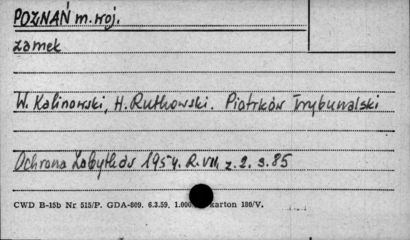 POZNAŃ m. woj.
zamek
W. Kalinowski, H. Rutkowski. Piotrków Trybunalski
Ochrona Zabytków 1954. R. VII, z. 2. s. 85
CWD B-15b Nr 515/P. GDA-809. 6.3.59. 1.000 karton 180/V.